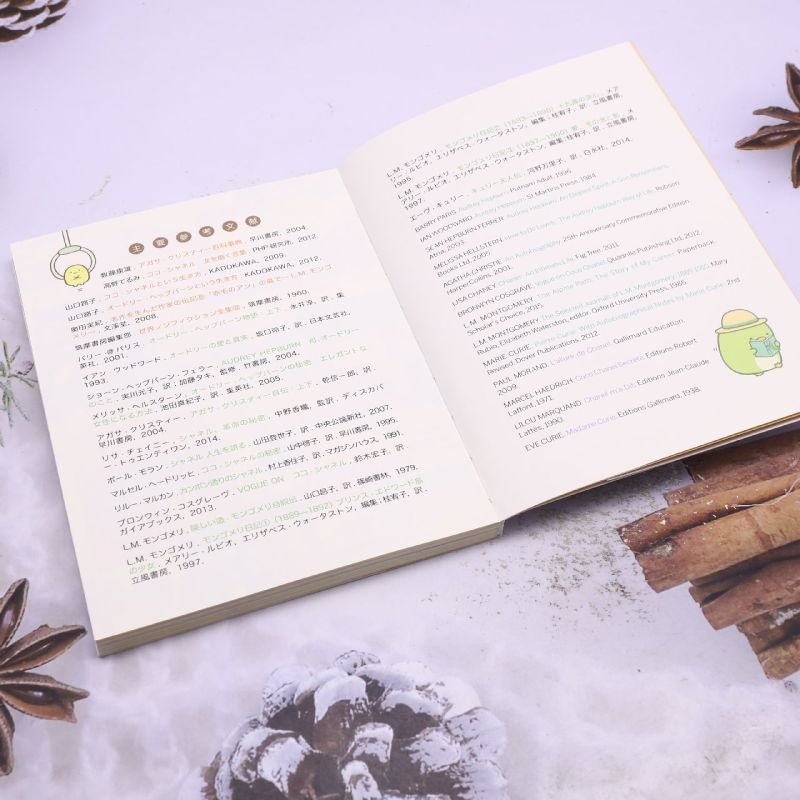 主要参考文献
数藤康雄．アガサ・クリスティー百科事典．早川書房，2004．
高野てるみ．ココ・シャネル 女を磨く言葉．PHP研究所，2012．
山口路子．ココ・シャネルという生き方．KADOKAWA，2009．
山口路子．オードリー・ヘップバーンという生き方．KADOKAWA，2012．
奥田実紀．名作を生んだ作家の伝記⑧『赤毛のアン』の島で：L.M.モンゴ
メリー．文溪堂，2008．
筑摩書房編集部．世界ノンフィクション全集8．筑摩書房，1960．
バリー・パリス．オードリー・ヘップバーン物語 上下．永井淳，訳．集
英社，2001．
イアン・ウッドワード．オードリーの愛と真実．坂口玲子，訳．日本文芸社，
1993．
ショーン・ヘップバーン・フェラー．AUDREY HEPBURN 母、オードリー
のこと．実川元子，訳；加藤タキ，監修．竹書房，2004．
メリッサ・ヘルスターン．オードリー・ヘップバーンの秘密 エレガントな
女性になる方法．池田真紀子，訳．集英社，2005．
アガサ・クリスティー．アガサ・クリスティー自伝 上下．乾信一郎，訳．
早川書房，2004．
リサ・チェイニー．シャネル、革命の秘密．中野香織，監訳．ディスカバ
ー・トゥエンティワン，2014．
ポール・モラン．シャネル 人生を語る．山田登世子，訳．中央公論新社，2007．
マルセル・ヘードリッヒ．ココ・シャネルの秘密．山中啓子，訳．早川書房，1995．
リルー・マルカン．カンボン通りのシャネル．村上香住子，訳．マガジンハウス，1991．
ブロンウィン・コスグレーヴ．VOGUE ON ココ・シャネル．鈴木宏子，訳．
ガイアブックス，2013．
L.M.モンゴメリ．険しい道 モンゴメリ自叙伝．山口昌子，訳．篠崎書林，1979．
L.M.モンゴメリ．モンゴメリ日記① (1889―1892) プリンス・エドワード島
の少女．メアリー・ルビオ，エリザベス・ウォータストン，編集；桂宥子，訳．
立風書房，1997．
L.M.モンゴメリ．モンゴメリ日記② (1893―1896) 十九歳の決心．メア
リー・ルビオ，エリザベス・ウォータストン，編集；桂宥子，訳．立風書房，
1995．
L.M.モンゴメリ．モンゴメリ日記③ (1897―1900) 愛、その光と影．メ
アリー・ルビオ，エリザベス・ウォータストン，編集；桂宥子，訳．立風書房，
1997．
エーヴ・キュリー．キュリー夫人伝．河野万里子，訳．白水社，2014．
BARRY PARIS. Audrey Hepburn. Putnam Adult, 1996.
IAN WOODWARD. Audrey Hepburn. St Martins Press, 1984.
SEAN HEPBURN FERRER. Audrey Hepburn, An Elegant Spirit: A Son Remembers.
Atria, 2003.
MELISSA HELLSTERN. How to be Lovely: The Audrey Hepburn Way of Life. Robson
Books Ltd, 2005.
AGATHA CHRISTIE. An Autobiography. 25th Anniversary Commemorative Edition.
HarperCollins, 2001.
LISA CHANEY. Chanel: An Intimate Life. Fig Tree, 2011.
BRONWYN COSGRAVE. Vogue on Coco Chanel. Quadrille Publishing Ltd, 2012.
L.M. MONTGOMERY. The Alpine Path: The Story of My Career. Paperback.
Scholar's Choice, 2015.
L.M. MONTGOMERY. The Selected Journals of L.M. Montgomery: 1889-1910. Mary
Rubio, Elizabeth Waterston, editor. Oxford University Press, 1985.
MARIE CURIE. Pierre Curie: With Autobiographical Notes by Marie Curie. 2nd
Revised. Dover Publications, 2012.
PAUL MORAND. L'allure de Chanel. Gallimard Education.
2009.
MARCEL HAEDRICH. Coco Chanel Secrète. Editions Robert
Laffont, 1971.
LILOU MARQUAND. Chanel m'a dit. Editions Jean Claude
Lattès, 1990.
EVE CURIE. Madame Curie. Editions Gallimard, 1938.